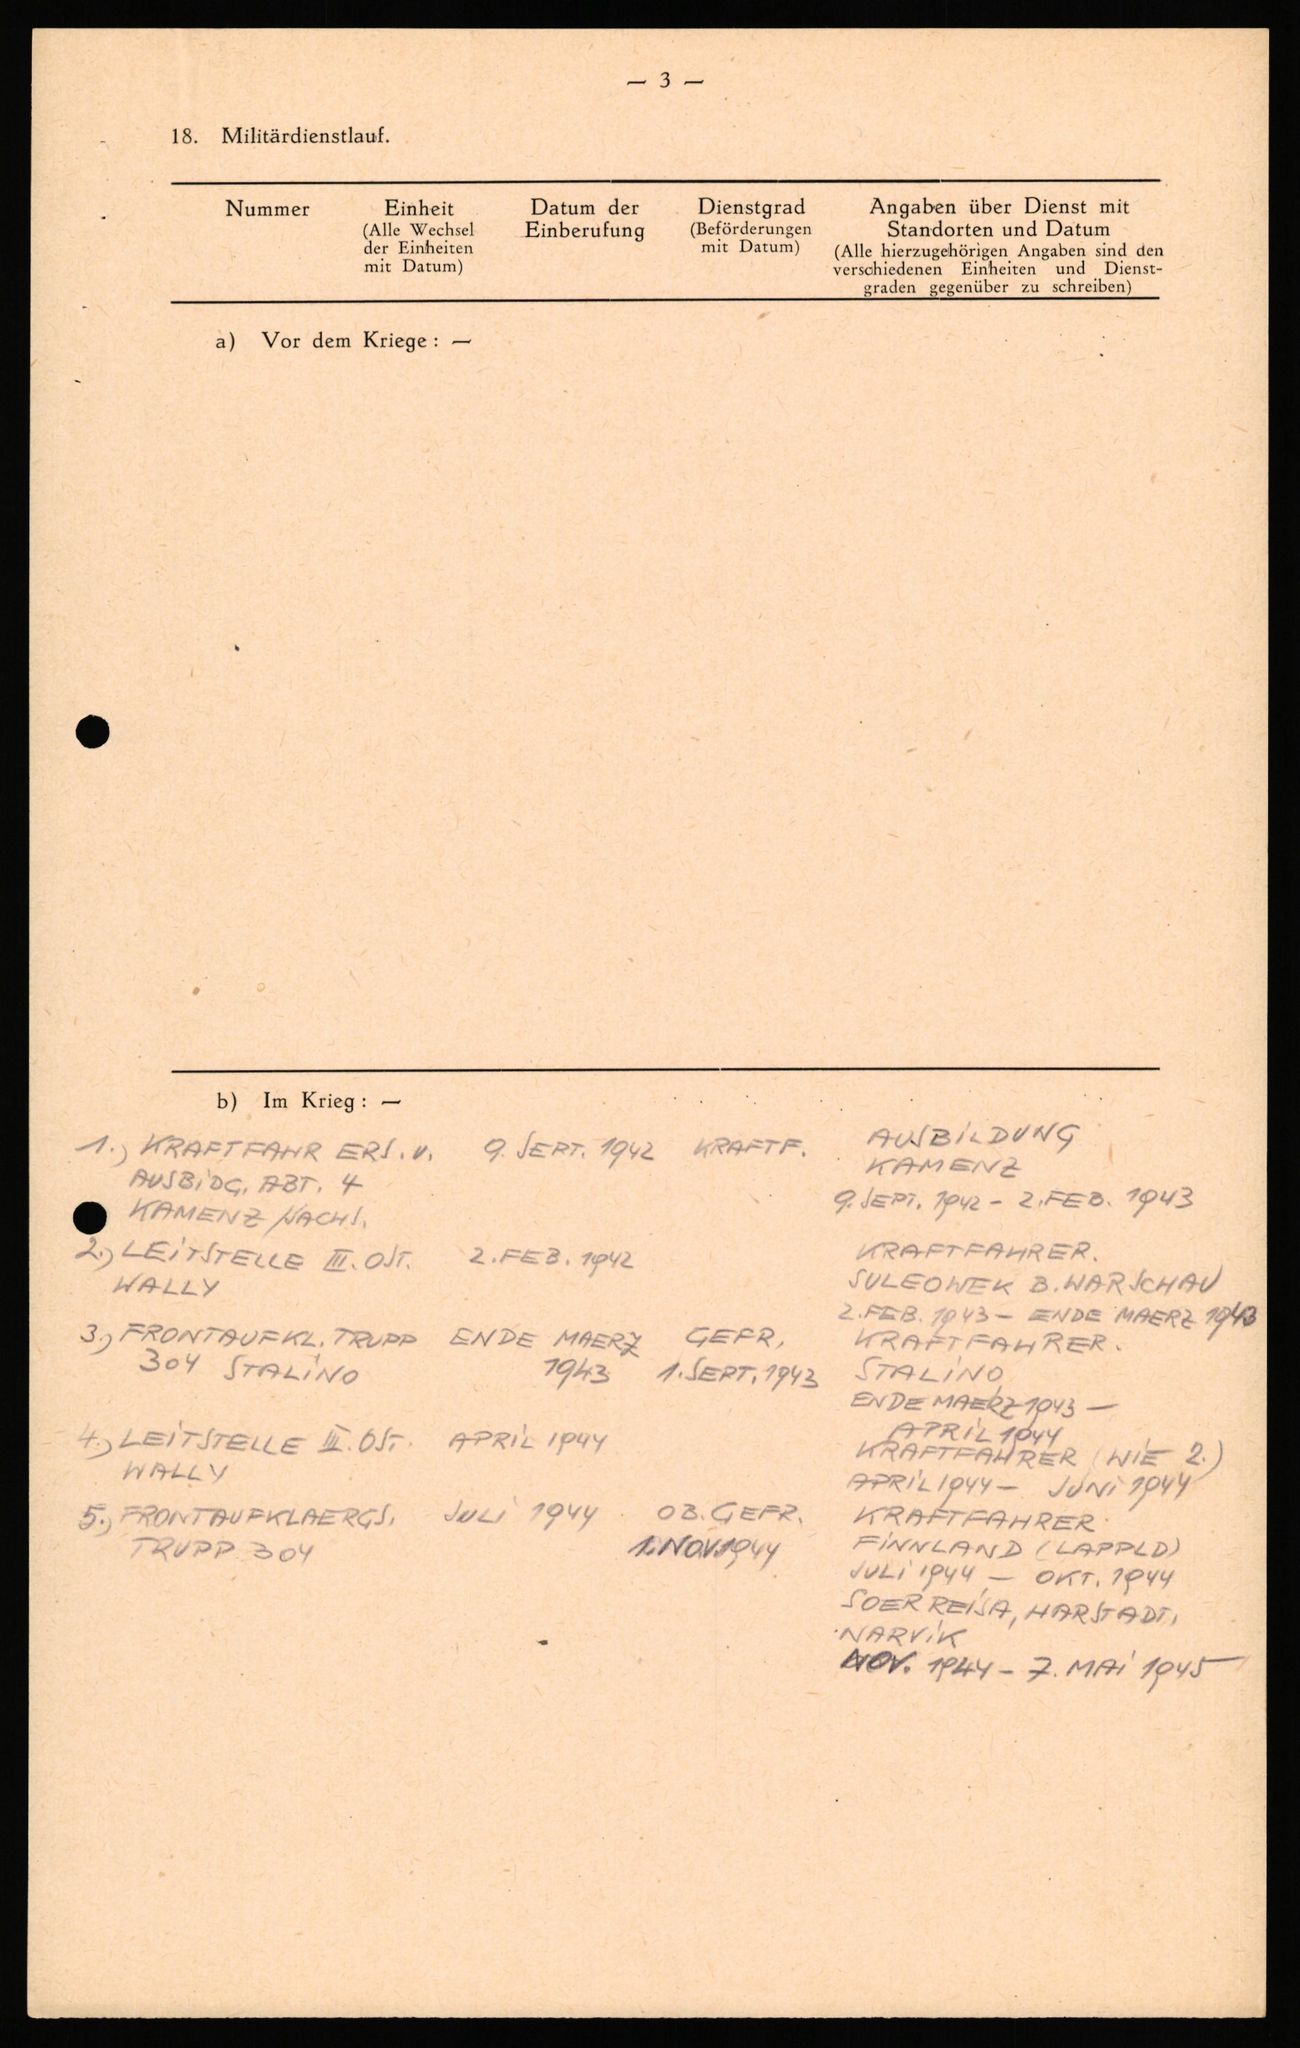 — 3 —
18. Militärdienstlauf.
Nummer
Einheit
(Alle Wechsel
der Einheiten
mit Datum)
Datum der
Einberufung
Dienstgrad
(Beförderungen
mit Datum)
Angaben über Dienst mit
Standorten und Datum
(Alle hierzugehörigen Angaben sind den
verschiedenen Einheiten und Dienst-
graden gegenüber zu schreiben)
a) Vor dem Kriege: —
b) Im Krieg: —
1.) KRAFTFAHR ERS. U.
AUSBIDG. ABT. 4
KAMENZ/SACHS.
9. SEPT. 1942
KRAFTF.
AUSBILDUNG
KAMENZ
9. SEPT. 1942 - 2. FEB. 1943
2.) LEITSTELLE III. OST.
WALLY
2. FEB. 1942
KRAFTFAHRER.
SULEOWEK B. WARSCHAU
2. FEB. 1943 - ENDE MAERZ 1943
3.) FRONTAUFKL. TRUPP
304 STALINO
ENDE MAERZ
1943
GEFR.
1. SEPT. 1943
KRAFTFAHRER.
STALINO
ENDE MAERZ 1943 —
APRIL 1944
4.) LEITSTELLE III. OST.
WALLY
APRIL 1944
KRAFTFAHRER (WIE 2.)
APRIL 1944 — JUNI 1944
5.) FRONTAUFKLAERGS.
TRUPP 304
JULI 1944
OB. GEFR.
1. NOV. 1944
KRAFTFAHRER
FINNLAND (LAPPLD)
JULI 1944 — OKT. 1944
SOERREISA, HARSTADT,
NARVIK
NOV. 1944 - 7. MAI 1945